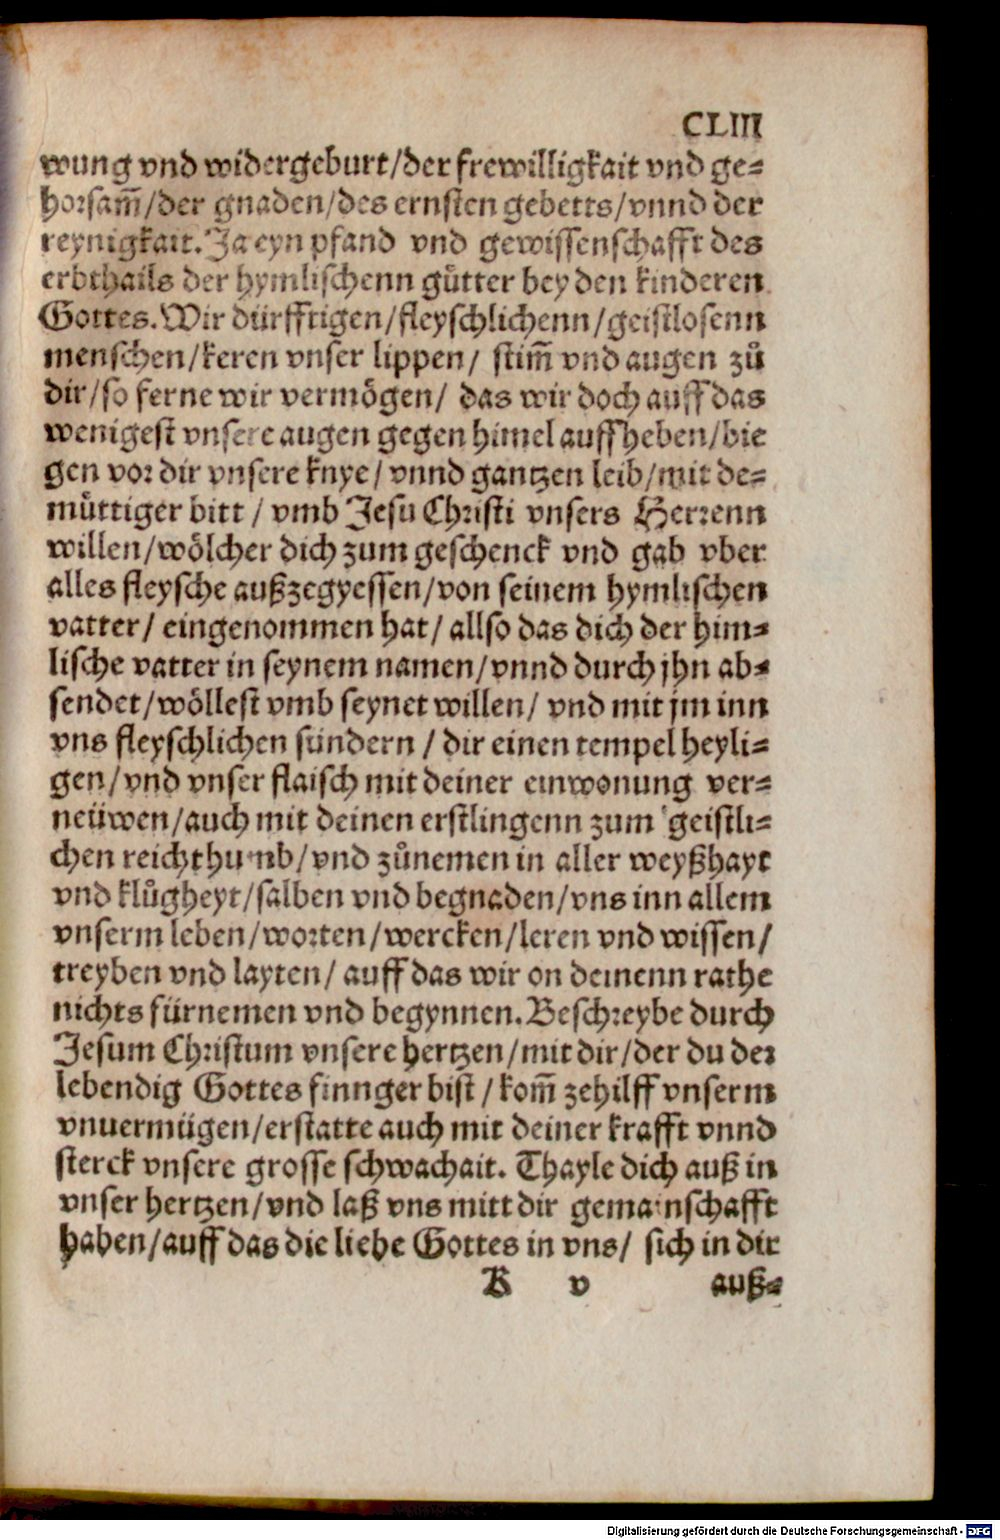 CLIII
wung vnd widergeburt/der frewilligkait vnd ge⸗
horsam̃/der gnaden/des ernsten gebetts/vnnd der
reynigkait. Ja eyn pfand vnd gewissenschafft des
erbthails der hymlischenn gůtter bey den kinderen
Gottes. Wir dürfftigen/fleyschlichenn/geistlosenn
menschen/keren vnser lippen/ stim̃ vnd augen zů
dir/so ferne wir vermögen/ das wir doch auff das
wenigest vnsere augen gegen himel auffheben/bie
gen vor dir vnsere knye/ vnnd gantzen leib/mit de⸗
můttiger bitt/ vmb Jesu Christi vnsers Herrenn
willen/wölcher dich zum geschenck vnd gab vber
alles fleysche außzegyessen/von seinem hymlischen
vatter/ eingenommen hat/ allso das dich der him⸗
lische vatter in seynem namen/vnnd durch jhn ab⸗
sendet/wöllest vmb seynet willen/ vnd mit jm inn
vns fleyschlichen sündern/ dir einen tempel heyli⸗
gen/vnd vnser flaisch mit deiner einwonung ver⸗
neüwen/auch mit deinen erstlingenn zum geistli⸗
chen reichthumb/vnd zůnemen in aller weyßhayt
vnd klůgheyt/salben vnd begnaden/vns inn allem
vnserm leben/worten/wercken/leren vnd wissen/
treyben vnd layten/ auff das wir on deinenn rathe
nichts fürnemen vnd begynnen. Beschreybe durch
Jesum Christum vnsere hertzen/mit dir/der du der
lebendig Gottes finnger bist/ kom̃ zehilff vnserm
vnuermügen/erstatte auch mit deiner krafft vnnd
sterck vnsere grosse schwachait. Thayle dich auß in
vnser hertzen/vnd laß vns mitt dir gemainschafft
haben/auff das die liebe Gottes in vns/ sich in dir
K v auß⸗
Digitalisierung gefördert durch die Deutsche Forschungsgemeinschaft - DFG